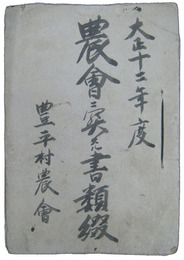 大正十二年度
農會ニ実允書類綴
豊平村農會